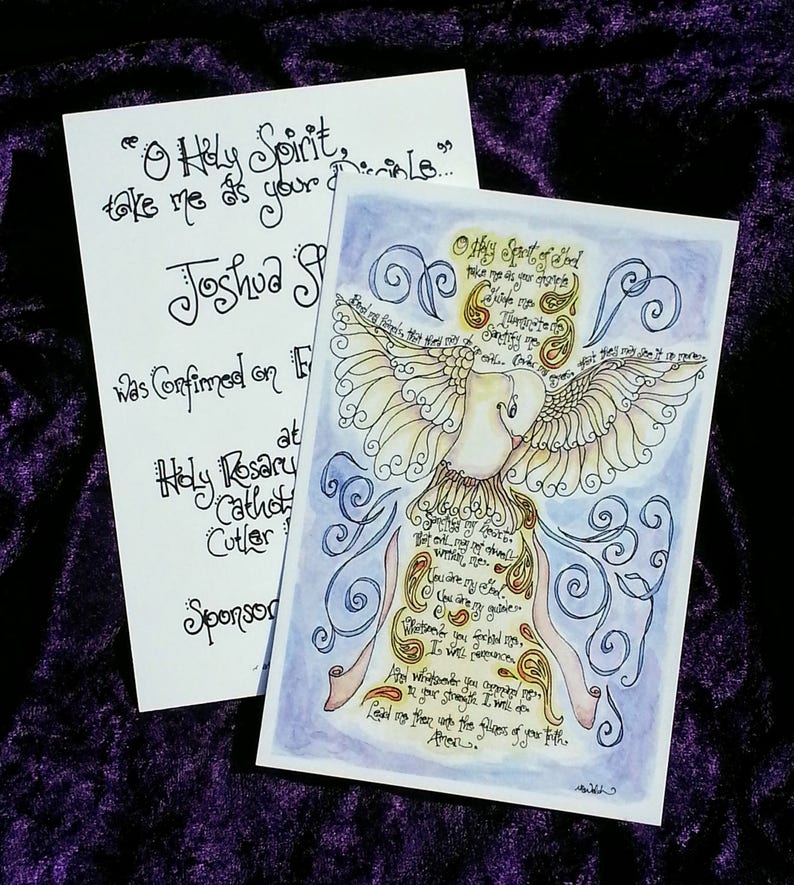 “O Holy Spirit,
take me as your Disciple...”
Joshua
was Confirmed on
at
Holy Rosary
Catholi
Cutler
Sponsor
O Holy Spirit of God
take me as your disciple
Guide me,
Illuminate me,
Sanctify me.
Bind my hands, that they may do no evil. Cover my eyes, that they may see it no more.
Sanctify my heart,
that evil may not dwell
within me.
You are my God,
You are my guide.
Whatsoever you forbid me,
I will renounce.
And whatsoever you command me,
in your strength I will do.
Lead me then unto the fullness of your truth.
Amen.